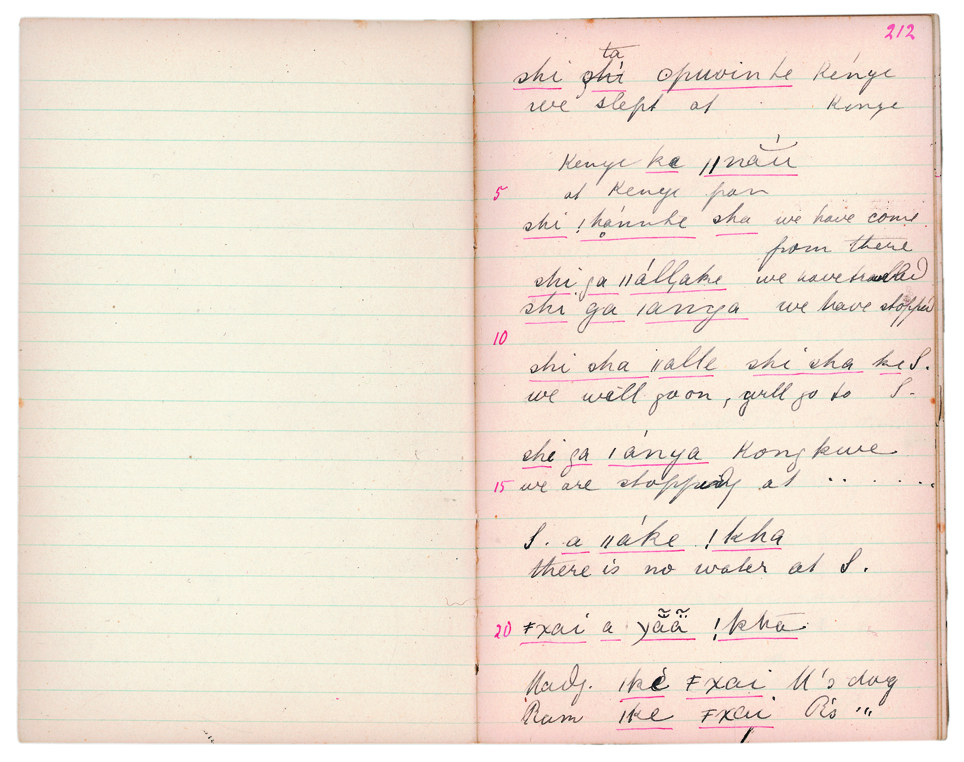 212
ta
shi shí opuvinte Kenye
we slept at Kenye
Kenye ke ǁnãũ
5 at Kenye pan
shi !hánnte sha we have come
from there
shi ga ǁállake we have travelled
shi ga ǀanya we have stopped
10
shi sha ǁalle shi sha ke S.
we will go on, will go to S.
shi ga ǀánya Kongkwe
15 we are stopping at . . . . . .
S. a ǁáke !kha
there is no water at S.
20 ǂxai a yãã !kha
ǀké ǂxai M's dog
Ram ǀke ǂxai R's "